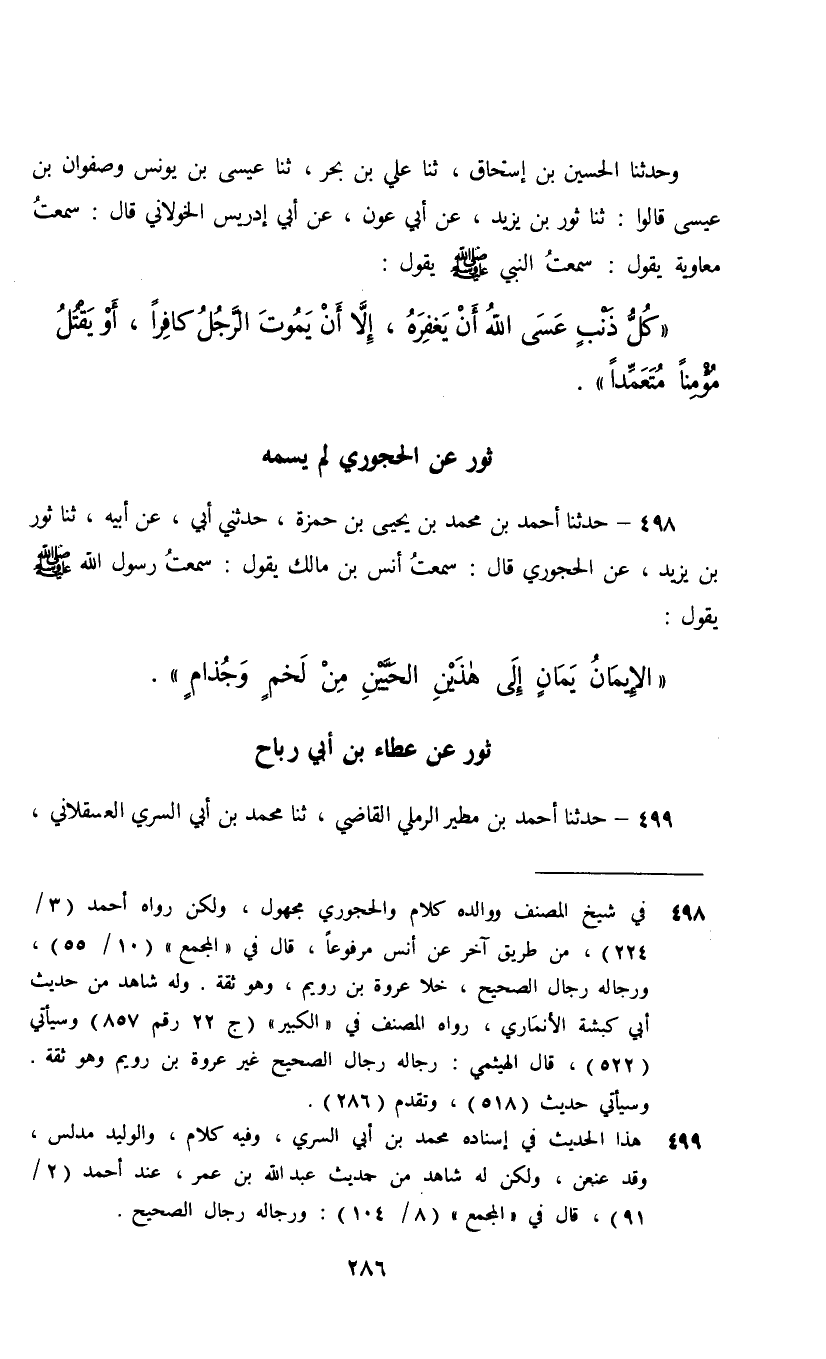 وحدثنا الحسين بن إسحاق ، ثنا علي بن بحر ، ثنا عيسى بن يونس وصفوان بن
عيسى قالوا : ثنا ثور بن يزيد ، عن أبي عون ، عن أبي إدريس الخولاني قال : سمعتُ
معاوية يقول : سمعتُ النبي ﷺ يقول :
« كُلُّ ذَنْبٍ عَسَى اللهُ أَنْ يَغْفِرَهُ ، إِلَّا أَنْ يَمُوتَ الرَّجُلُ كافِراً ، أَوْ يَقْتُلُ
مُؤْمِناً مُتَعَمِّداً » .
ثور عن الحجوري لم يسمه
٤٩٨ – حدثنا أحمد بن محمد بن يحيى بن حمزة ، حدثني أبي ، عن أبيه ، ثنا ثور
بن يزيد ، عن الحجوري قال : سمعتُ أنس بن مالك يقول : سمعتُ رسول الله ﷺ
يقول :
« الإِيمَانُ يَمَانٍ إِلَى هٰذَيْنِ الحَيَّيْنِ مِنْ لَخمٍ وَجُذامٍ » .
ثور عن عطاء بن أبي رباح
٤٩٩ – حدثنا أحمد بن مطير الرملي القاضي ، ثنا محمد بن أبي السري العسقلاني ،
٤٩٨ في شيخ المصنف ووالده كلام والحجوري مجهول ، ولكن رواه أحمد ( ٣ /
٢٢٤ ) ، من طريق آخر عن أنس مرفوعاً ، قال في « المجمع » ( ١٠ / ٥٥ ) ،
ورجاله رجال الصحيح ، خلا عروة بن رويم ، وهو ثقة . وله شاهد من حديث
أبي كبشة الأنماري ، رواه المصنف في « الكبير » ( ج ٢٢ رقم ٨٥٧ ) وسيأتي
( ٥٢٢ ) ، قال الهيثمي : رجاله رجال الصحيح غير عروة بن رويم وهو ثقة .
وسيأتي حديث ( ٥١٨ ) ، وتقدم ( ٢٨٦ ) .
٤٩٩ هذا الحديث في إسناده محمد بن أبي السري ، وفيه كلام ، والوليد مدلس ،
وقد عنعن ، ولكن له شاهد من حديث عبد الله بن عمر ، عند أحمد ( ٢ /
٩١ ) ، قال في « المجمع » ( ٨ / ١٠٤ ) : ورجاله رجال الصحيح .
٢٨٦